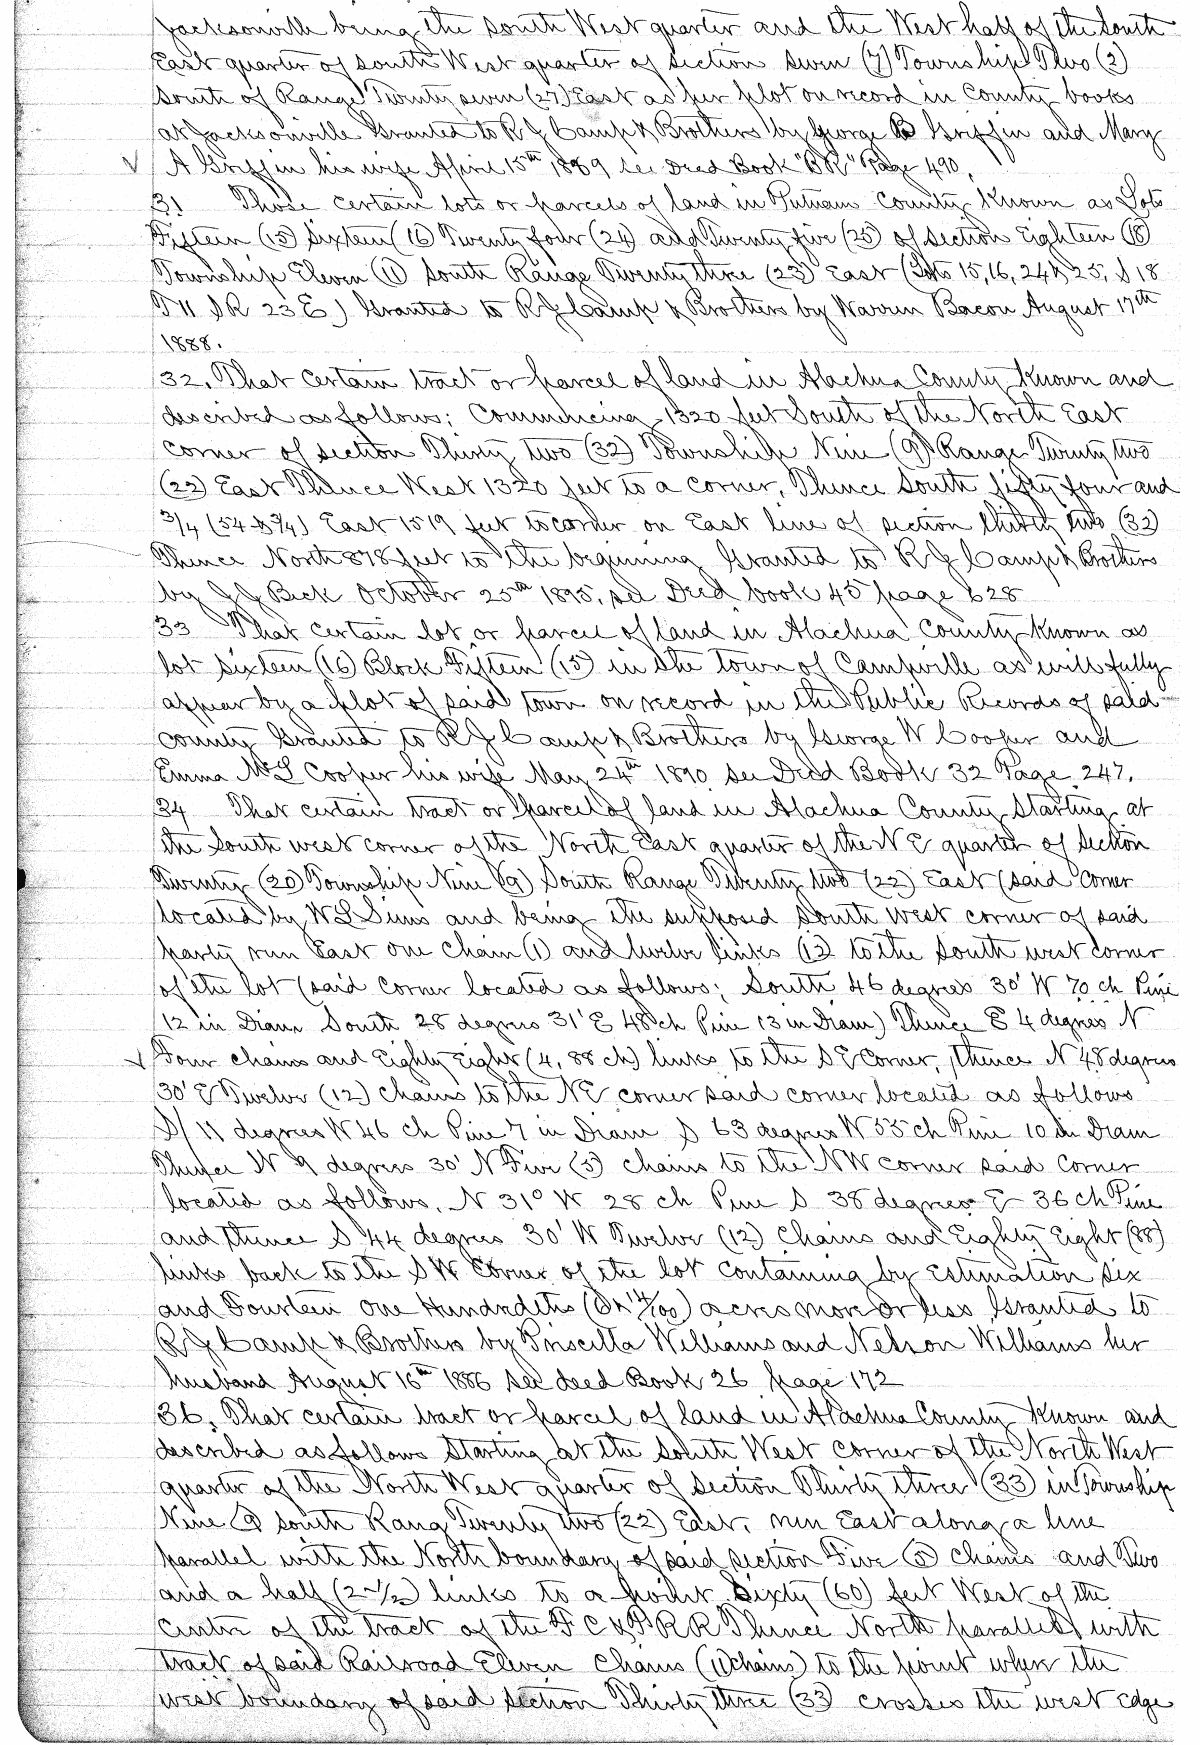 Jacksonville being the South West quarter and the West half of the South
East quarter of South West quarter of Section seven (7) Township Two (2)
South of Range Twenty seven (27) East as per plot on record in County books
at Jacksonville Granted to R J Camp & Brothers by George B Griffin and Mary
A Griffin his wife April 15th 1889 see Deed Book "BR" Page 490.
31 Those certain lots or parcels of land in Putnam County Known as Lots
Fifteen (15) Sixteen (16) Twenty four (24) and Twenty five (25) of Section Eighteen (18)
Township Eleven (11) South Range Twenty three (23) East (Lots 15, 16, 24 & 25, S 18
T 11 S R 23 E) Granted to R J Camp & Brothers by Warren Bacon August 17th
1888.
32. That certain tract or parcel of land in Alachua County Known and
described as follows: Commencing 1320 feet South of the North East
corner of Section Thirty two (32) Township Nine (9) Range Twenty two
(22) East Thence West 1320 feet to a corner, Thence South fifty four and
3/4 (54 & 3/4) East 1519 feet to corner on East line of section thirty two (32)
Thence North 878 feet to the beginning Granted to R J Camp & Brothers
by J J Beck October 25th 1895, see Deed book 45 page 628
33 That certain lot or parcel of land in Alachua County Known as
lot Sixteen (16) Block Fifteen (15) in the town of Campville as will fully
appear by a plot of said town on record in the Public Records of said
County Granted to R J Camp & Brothers by George W Cooper and
Emma McL Cooper his wife May 24th 1890 see Deed Book 32 Page 247.
34 That certain tract or parcel of land in Alachua County Starting at
the South west corner of the North East quarter of the N E quarter of Section
Twenty (20) Township Nine (9) South Range Twenty two (22) East (said corner
located by W L Sims and being the supposed South west corner of said
party run East one chain (1) and twelve links (12 to the South west corner
of the lot (said corner located as follows; South 46 degrees 30' W 70 ch Pine
12 in Diam South 28 degrees 31' E 48 ch Pine 13 in Diam) Thence E 4 degrees N
Four chains and Eighty Eight (4,88 ch) links to the S E Corner, thence N 48 degrees
30' E Twelve (12) chains to the N E corner said corner located as follows
S/ 11 degrees W 46 ch Pine 7 in Diam S 63 degrees W 55 ch Pine 10 in Diam
Thence W 9 degrees 30' N Five (5) chains to the N W corner said corner
located as follows. N 31° W 28 ch Pine S 38 degrees E 36 ch Pine
and thence S 44 degrees 30' W Twelve (12) Chains and Eighty Eight (88)
links back to the S W Corner of the lot containing by Estimation six
and Fourteen one Hundredths 14/100) acres more or less Granted to
R J Camp & Brothers by Priscilla Williams and Nelson Williams her
husband August 16th 1886 see deed Book 26 page 172
36. That certain tract or parcel of land in Alachua County Known and
described as follows Starting at the South West corner of the North West
quarter of the North West quarter of Section Thirty three (33) in Township
Nine 9 South Rang Twenty two (22) East. run East along a line
parallel with the North boundary of said section Five (5) chains and Two
and a half (2-1/2) links to a point Sixty (60) feet West of the
Centre of the tract of the F C & P R R Thence North parallel with
tract of said Railroad Eleven Chains (11 chains) to the point where the
west boundary of said section Thirty three (33) crosses the west edge